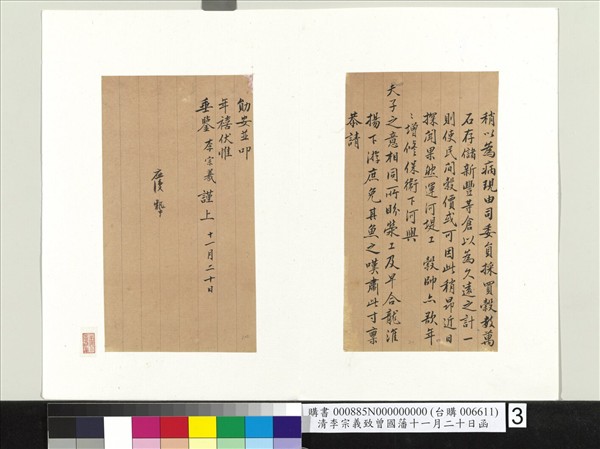 稍以為病現由司委員採買穀數萬
石存儲新豐等倉以為久遠之計一
則使民間穀價或可因此稍昂近日
探聞果然運河堤工
增修保衛下河與
夫子之意相同所盼蔡工及早合龍淮
揚下游庶免其魚之嘆肅此寸稟
恭請
勛安並叩
年禧伏惟
垂鑒 李宗羲謹上 十一月二十日
購書 000885N000000000 (台購 006611)
清李宗羲致曾國藩十一月二十日函
3